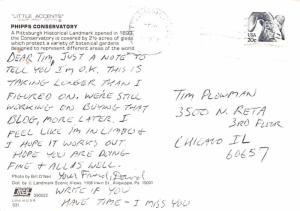 "LITTLE ACCENTS"
PHIPPS CONSERVATORY
A Pittsburgh Historical Landmark opened in 1893,
the Conservatory is covered by 2½ acres of glass
which protect a variety of botanical gardens
designed to represent different areas of the world.
USA
20c
DEAR TIM, JUST A NOTE TO
TELL YOU I'M O.K. THIS IS
TAKING LONGER THAN I
FIGURED ON. WE'RE STILL
WORKING ON BUYING THAT
BLDG, MORE LATER. I
FEEL LIKE I'M IN LIMBO &
I HOPE IT WORKS OUT
HOPE YOU ARE DOING
FINE & ALL IS WELL.
YOUR FRIEND, DAVID
WRITE IF YOU
HAVE TIME - I MISS YOU
TIM PLOWMAN
3500 N. RETA
3RD FLOOR
CHICAGO IL
60657
Photo by Bill O'Neil